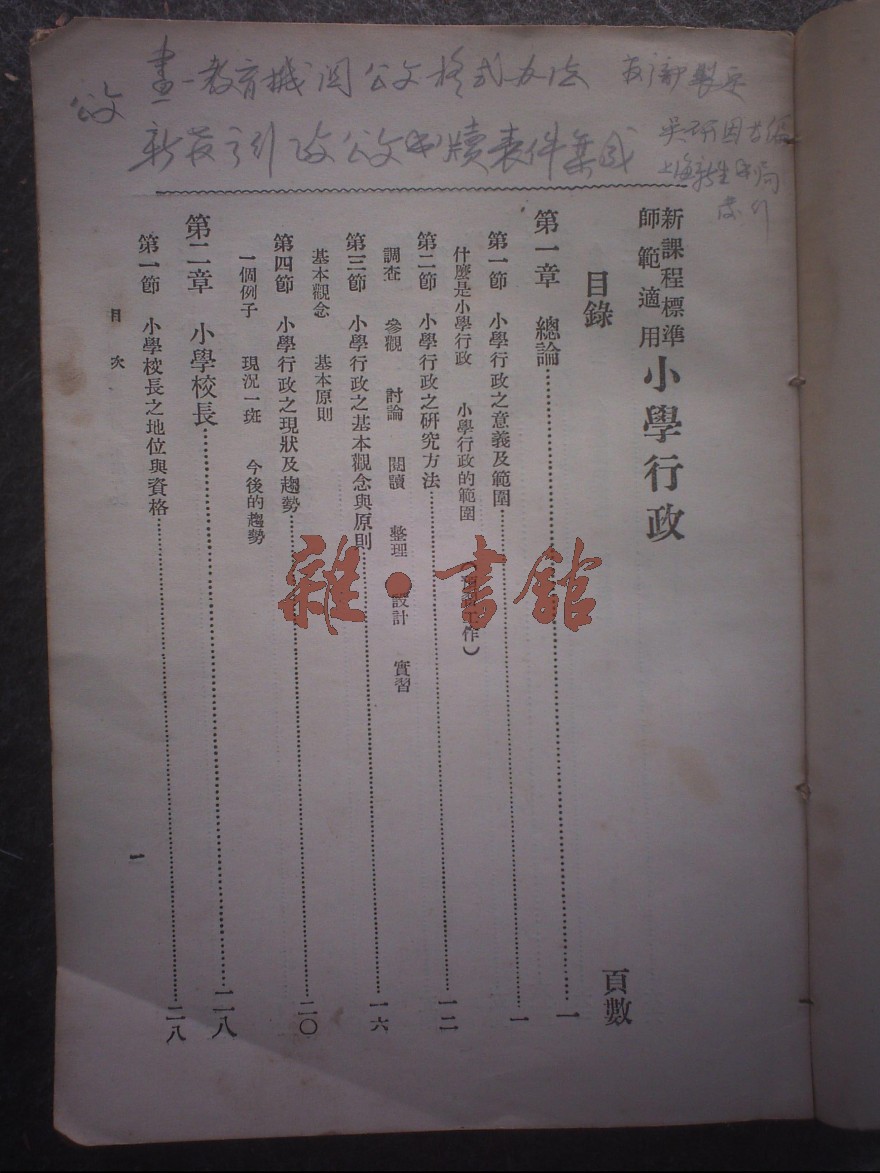 公文
畫一教育機關公文格式办法
新發 公文書牘表件集成
新課程標準
師範適用
小學行政
目錄
頁數
第一章 總論……一
第一節 小學行政之意義及範圍……一
什麼是小學行政 小學行政的範圍 工作)
第二節 小學行政之研究方法……一二
調查 參觀 討論 閱讀 整理 設計 實習
第三節 小學行政之基本觀念與原則……一六
基本觀念 基本原則
第四節 小學行政之現狀及趨勢……二〇
一個例子 現况一斑 今後的趨勢
第二章 小學校長……二八
第一節 小學校長之地位與資格……二八
目次
一
雜·書館